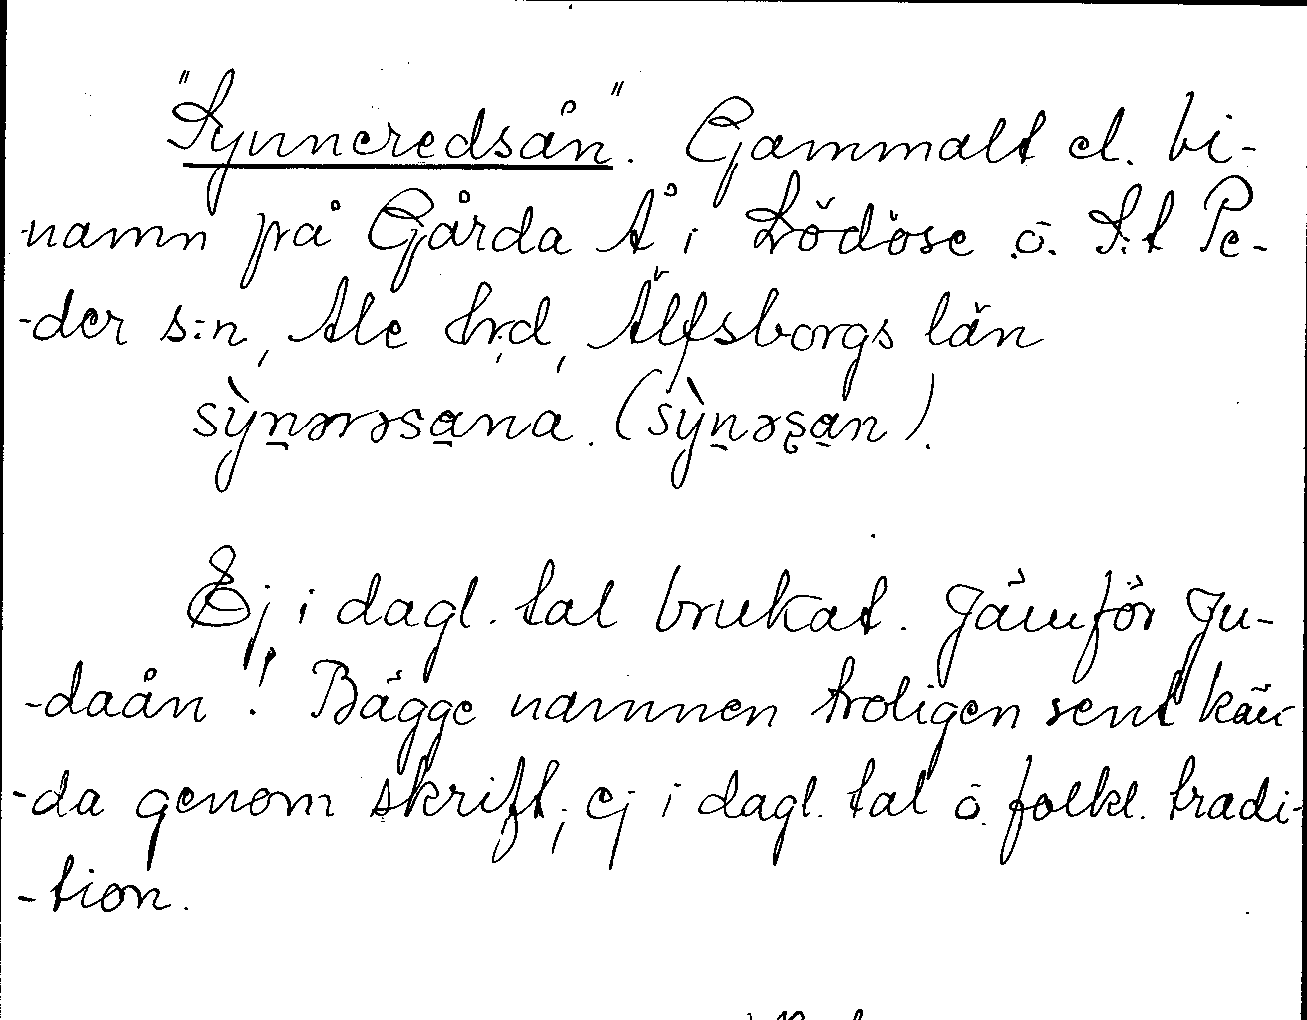 "Synneredsån". Gammalt el. bi-
namn på Gårda Å i Lödöse o. S:t Pe-
-der s:n, Ale hrd, Älfsborgs län
sỳn̠ərəsa̠na. (sỳn̠əʂa̠n).
Ej i dagl. tal brukat. Jämför Ju-
-daån! Bägge namnen troligen sent kän
-da genom skrift, ej i dagl. tal o. folkl. tradi-
-tion.